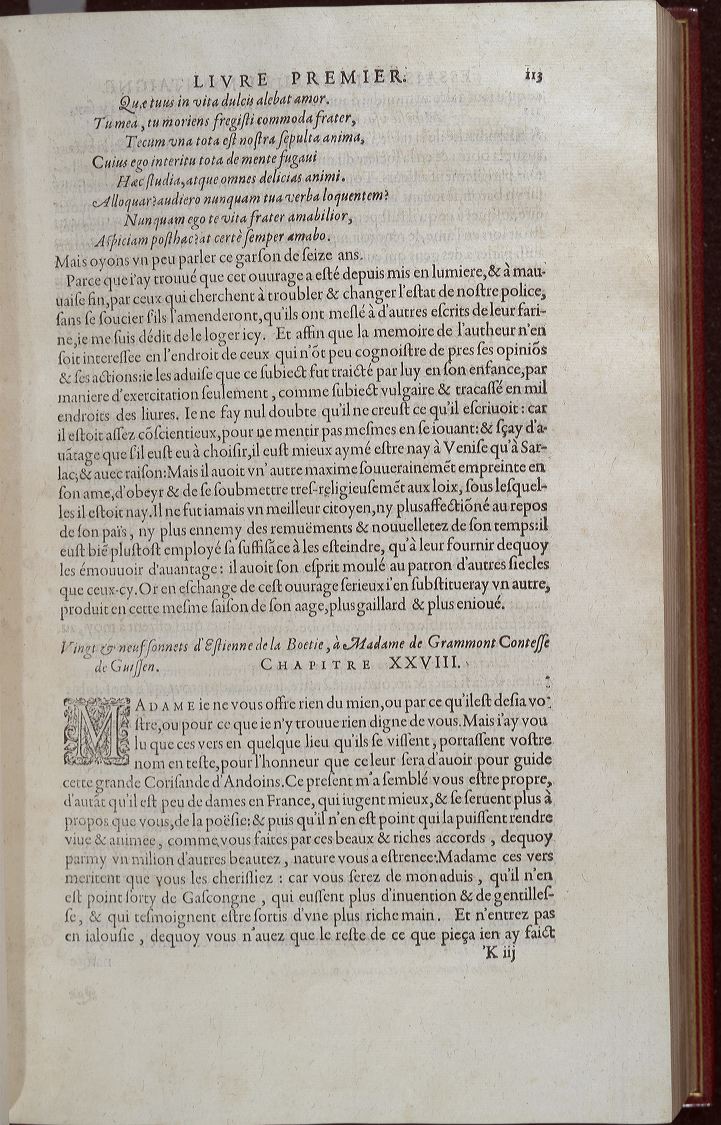 LIVRE PREMIER. 113
Quæ tuus in vita dulcis alebat amor.
Tu mea, tu moriens fregiſti commoda frater,
Tecum vna tota eſt noſtra ſepulta anima,
Cuius ego interitu tota de mente fugaui
Hæc ſtudia, atque omnes delicias animi.
Alloquar? audiero nunquam tua verba loquentem?
Nunquam ego te vita frater amabilior,
Aſpiciam poſthac? at certè ſemper amabo.
Mais oyons vn peu parler ce garſon de ſeize ans.
Parce que i'ay trouué que cet ouurage a eſté depuis mis en lumiere, & à mau-
uaiſe fin, par ceux qui cherchent à troubler & changer l'eſtat de noſtre police,
ſans ſe ſoucier s'ils l'amenderont, qu'ils ont meſlé à d'autres eſcrits de leur fari-
ne, ie me ſuis dédit de le loger icy. Et affin que la memoire de l'autheur n'en
ſoit intereſſée en l'endroit de ceux qui n'õt peu cognoiſtre de pres ſes opiniõs
& ſes actions: ie les aduiſe que ce ſubiect fut traicté par luy en ſon enfance, par
maniere d'exercitation ſeulement, comme ſubiect vulgaire & tracaſſé en mil
endroits des liures. Ie ne fay nul doubte qu'il ne creuſt ce qu'il eſcriuoit: car
il eſtoit aſſez cõſcientieux, pour ne mentir pas meſmes en ſe iouant: & ſçay d'a-
uãtage que s'il euſt eu à choiſir, il euſt mieux aymé eſtre nay à Veniſe qu'à Sar-
lac; & auec raiſon: Mais il auoit vn' autre maxime ſouuerainemẽt empreinte en
ſon ame, d'obeyr & de ſe ſoubmettre tres-religieuſemẽt aux loix, ſous leſquel-
les il eſtoit nay. Il ne fut iamais vn meilleur citoyen, ny plus affectiõné au repos
de ſon païs, ny plus ennemy des remuëments & nouuelletez de ſon temps: il
euſt biẽ pluſtoſt employé ſa ſuffiſãce à les eſteindre, qu'à leur fournir dequoy
les émouuoir d'auantage: il auoit ſon eſprit moulé au patron d'autres ſiecles
que ceux-cy. Or en eſchange de ceſt ouurage ſerieux i'en ſubſtitueray vn autre,
produit en cette meſme ſaiſon de ſon aage, plus gaillard & plus enioué.
Vingt & neuf ſonnets d'Eſtienne de la Boetie, à Madame de Grammont Conteſſe
de Guiſſen. CHAPITRE XXVIII.
MADAME ie ne vous offre rien du mien, ou par ce qu'il eſt deſia vo-
ſtre, ou pour ce que ie n'y trouue rien digne de vous. Mais i'ay vou
lu que ces vers en quelque lieu qu'ils ſe viſſent, portaſſent voſtre
nom en teſte, pour l'honneur que ce leur ſera d'auoir pour guide
cette grande Coriſande d'Andoins. Ce preſent m'a ſemblé vous eſtre propre,
d'autãt qu'il eſt peu de dames en France, qui iugent mieux, & ſe ſeruent plus à
propos que vous, de la poëſie: & puis qu'il n'en eſt point qui la puiſſent rendre
viue & animee, comme vous faites par ces beaux & riches accords, dequoy
parmy vn milion d'autres beautez, nature vous a eſtrenee: Madame ces vers
meritent que vous les cheriſſiez: car vous ſerez de mon aduis, qu'il n'en
eſt point ſorty de Gaſcongne, qui euſſent plus d'inuention & de gentilleſ-
ſe, & qui teſmoignent eſtre ſortis d'vne plus riche main. Et n'entrez pas
en ialouſie, dequoy vous n'auez que le reſte de ce que pieça ien ay faict
K iij